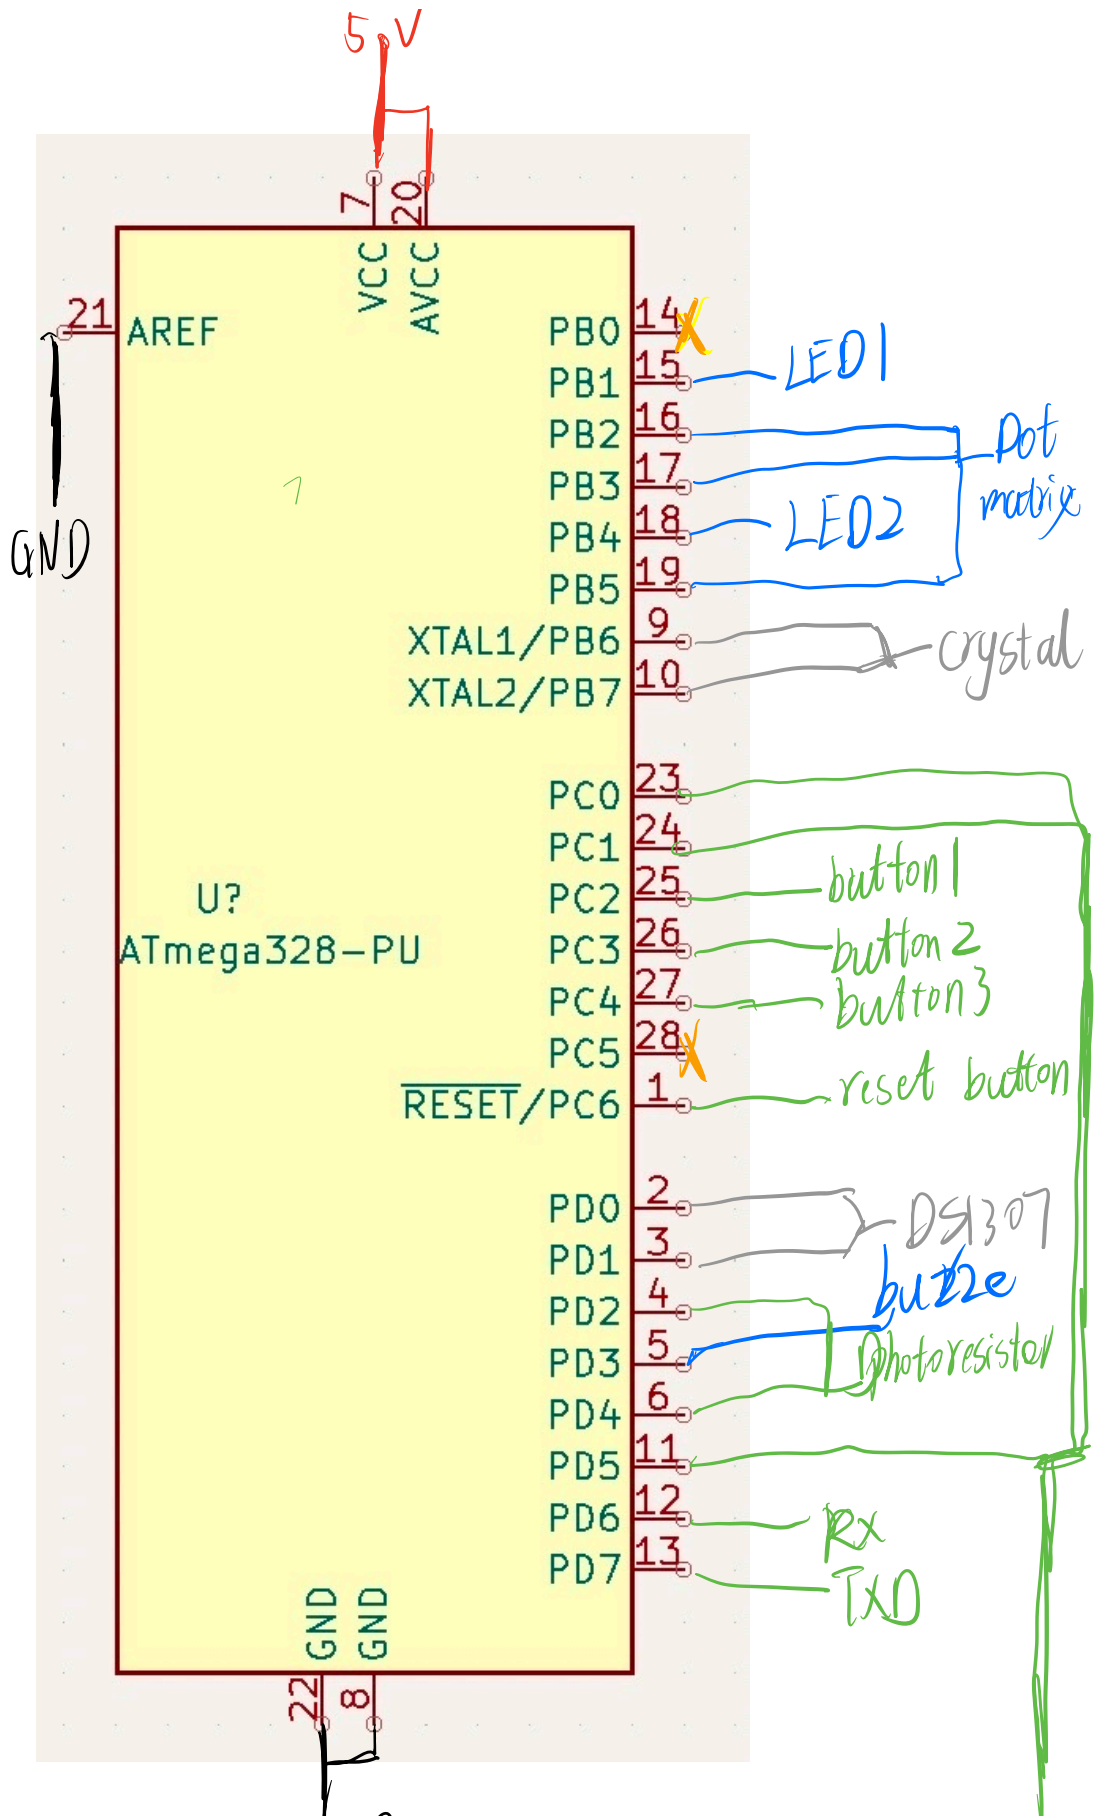 5V
7
20
VCC
AVCC
21
AREF
GND
PB0
14
X
PB1
15
LED1
PB2
16
PB3
17
Dot
matrix
PB4
18
LED2
PB5
19
XTAL1/PB6
9
XTAL2/PB7
10
crystal
PC0
23
PC1
24
PC2
25
button1
U?
ATmega328-PU
PC3
26
button2
PC4
27
button3
PC5
28
X
RESET/PC6
1
reset button
PD0
2
PD1
3
DS1307
PD2
4
buzze
PD3
5
photoresistor
PD4
6
PD5
11
PD6
12
Rx
PD7
13
TXD
GND
GND
22
8